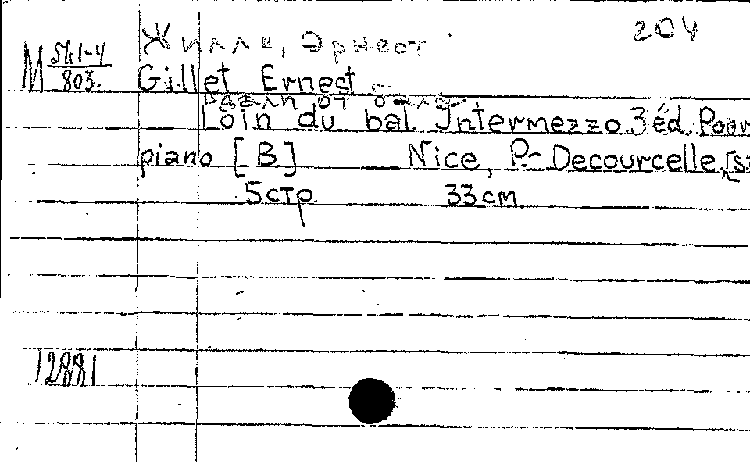 204
Жилле, Эрнест
М 541-4/803.
Gillet Ernest
Вдали от бала
Loin du bal Intermezzo. 3 éd. Pour
piano [B] Nice, P. Decourcelle, [s.
5 стр 33 cm
12881